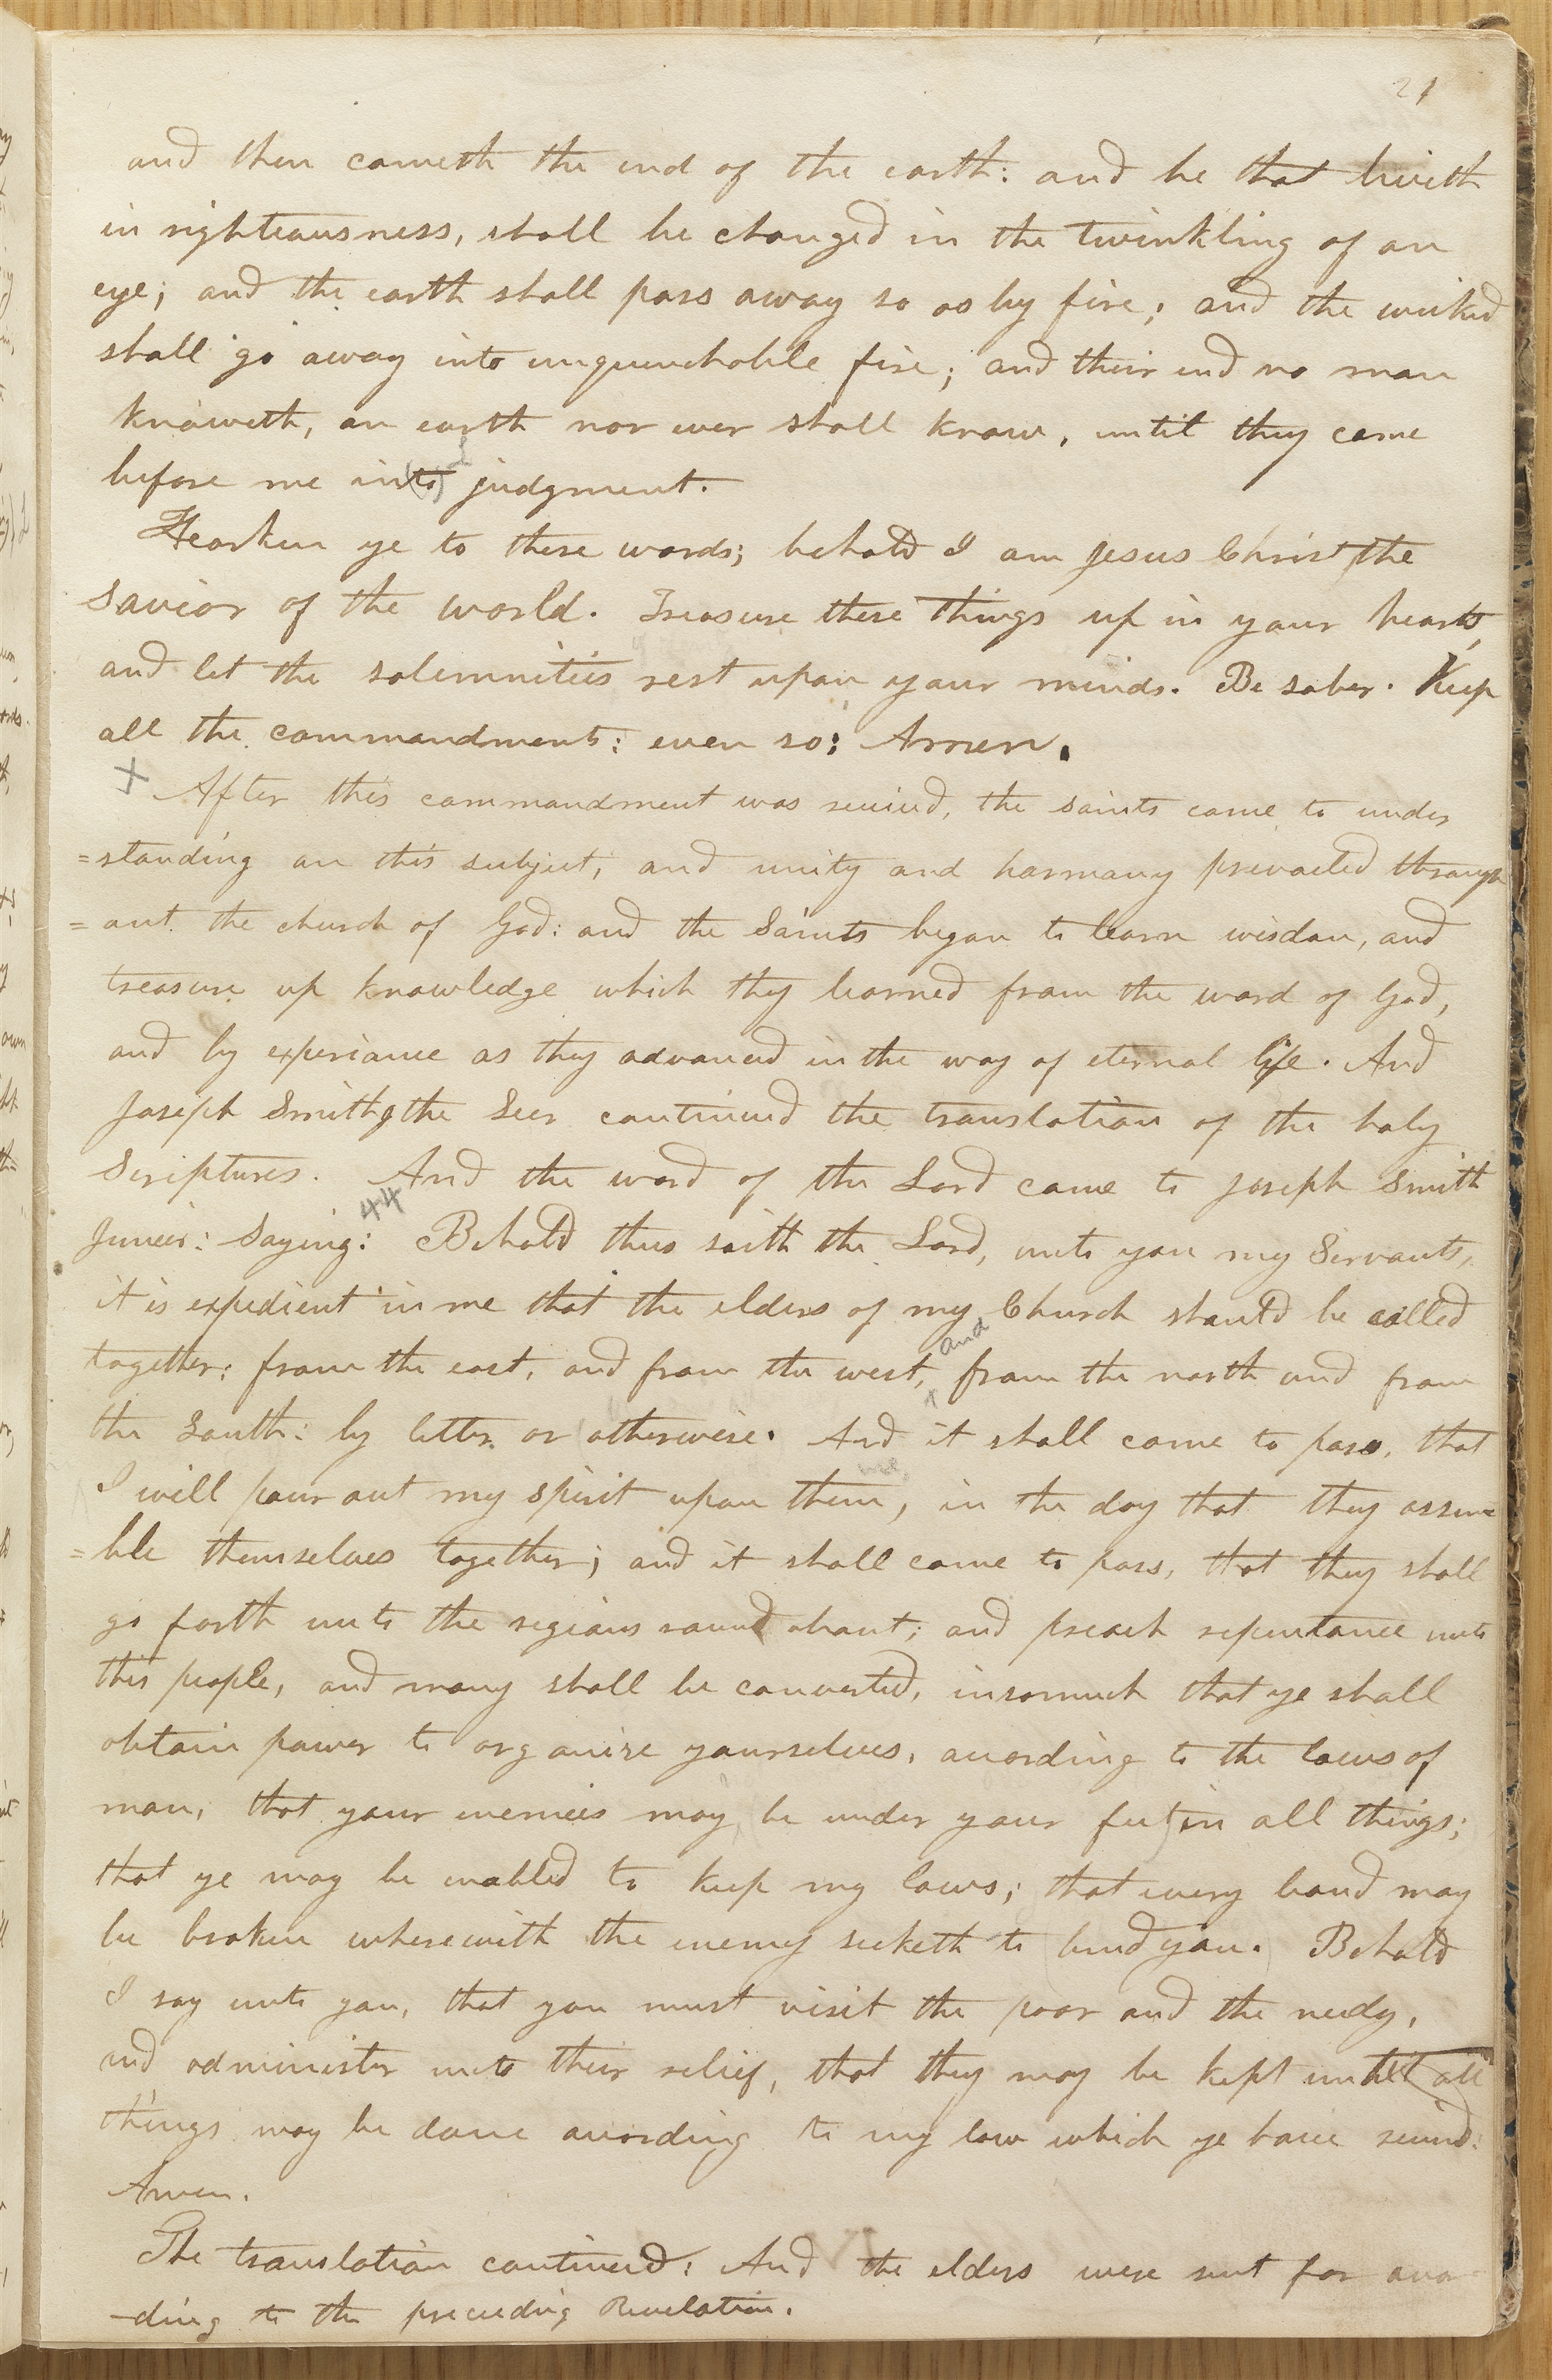 21
and then cometh the end of the earth: and he that liveth
in righteousness, shall be changed in the twinkling of an
eye; and the earth shall pass away so as by fire; and the wicked
shall go away into unquenchable fire; and their end no man
knoweth, on earth nor ever shall know, until they come
before me in(to) judgment.
Hearken ye to these words; behold I am Jesus Christ the
Savior of the world. Treasure these things up in your hearts,
and let the solemnities rest upon your minds. Be sober. Keep
all the commandments: even so: Amen.
+ After this commandment was received, the saints came to under
=standing on this subject, and unity and harmony prevailed through
=out the church of God: and the Saints began to learn wisdom, and
treasure up knowledge which they learned from the word of God,
and by experiance as they advanced in the way of eternal life. And
Joseph Smith, the Seer continued the translation of the holy
Scriptures. And the word of the Lord came to Joseph Smith
44
Junier: Saying: Behold thus saith the Lord, unto you my Servants,
it is expedient in me that the elders of my Church should be called
together: from the east, and from the west, and from the north and from
the South: by letter or otherwise. And it shall come to pass, that
I will pour out my spirit upon them, in the day that they assem=
=ble themselves together; and it shall come to pass, that they shall
go forth unto the regions round about; and preach repentance unto
this people, and many shall be converted, insomuch that ye shall
obtain power to organize yourselves, according to the laws of
man, that your enemies may be under your feet in all things;
that ye may be enabled to keep my laws; that every band may
be broken wherewith the enemy seeketh to bind you. Behold
I say unto you, that you must visit the poor and the needy,
and administer unto their relief, that they may be kept until all
things may be done according to my law which ye have received:
Amen.
The translation continued: And the elders were sent for accor
-ding to the preceeding Revelation.